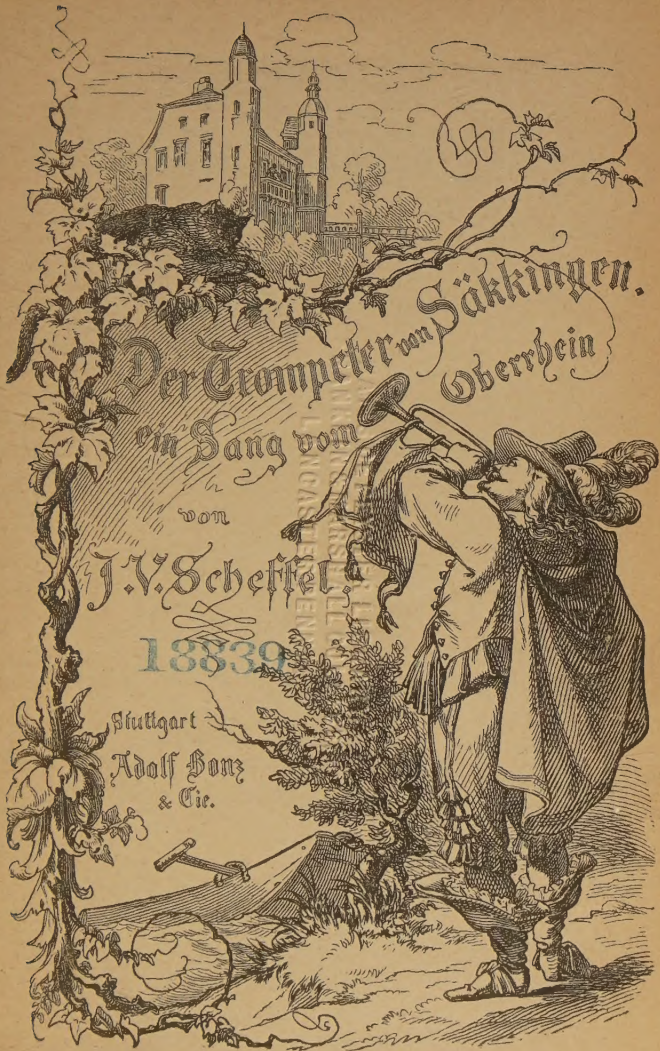 Der Trompeter von Säkkingen.
ein Sang vom Oberrhein
von
J.V. Scheffel.
18839
Stuttgart
Adolf Bonz
& Cie.